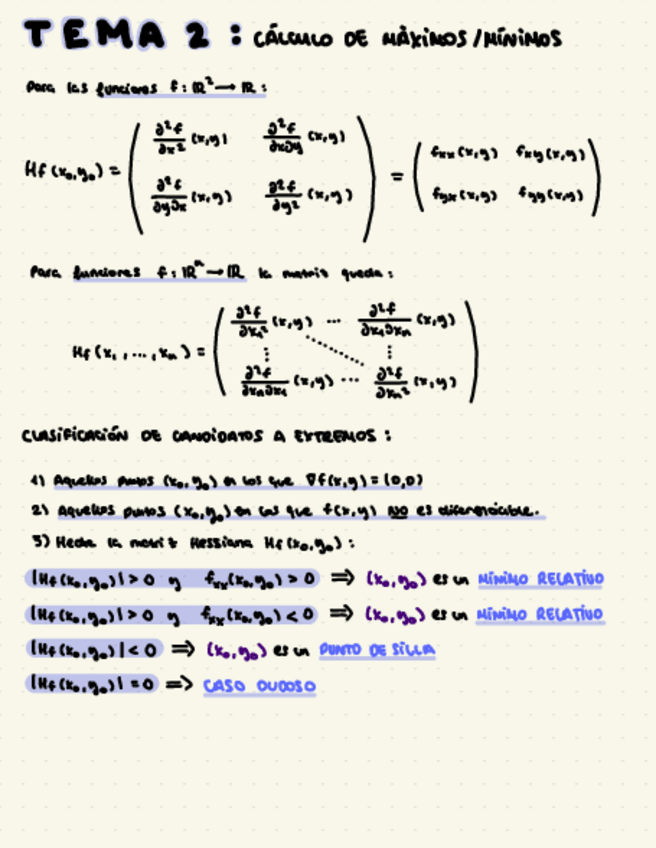 TEMA 2 : CÁLCULO DE MÁXIMOS/MÍNIMOS
Para las funciones f: ℝ² → ℝ :
Hf (x₀,y₀) = ( ∂²f/∂x² (x,y) ∂²f/∂x∂y (x,y) ; ∂²f/∂y∂x (x,y) ∂²f/∂y² (x,y) ) = ( fxx(x,y) fxy(x,y) ; fyx(x,y) fyy(x,y) )
Para funciones f: ℝⁿ → ℝ la matriz queda :
Hf (x₁, ..., xₙ) = ( ∂²f/∂x₁² (x,y) ... ∂²f/∂x₁∂xₙ (x,y) ; ⋮ ⋱ ⋮ ; ∂²f/∂xₙ∂x₁ (x,y) ... ∂²f/∂xₙ² (x,y) )
CLASIFICACIÓN DE CANDIDATOS A EXTREMOS :
1) Aquellos puntos (x₀,y₀) en los que ∇f(x,y) = (0,0)
2) Aquellos puntos (x₀,y₀) en las que f(x,y) NO es diferenciable.
3) Hecha la matriz Hessiana Hf(x₀,y₀) :
|Hf(x₀,y₀)| > 0 y fxx(x₀,y₀) > 0 ⇒ (x₀,y₀) es un MÍNIMO RELATIVO
|Hf(x₀,y₀)| > 0 y fxx(x₀,y₀) < 0 ⇒ (x₀,y₀) es un MÍNIMO RELATIVO
|Hf(x₀,y₀)| < 0 ⇒ (x₀,y₀) es un PUNTO DE SILLA
|Hf(x₀,y₀)| = 0 ⇒ CASO DUDOSO